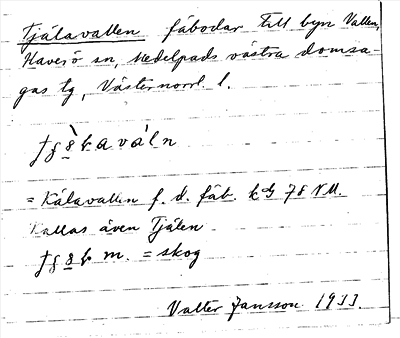 Tjälavallen fäbodar till byn Vallen,
Haverö sn, Medelpads västra domsa-
gas tg, Västernorrl. l.
= Kälavallen f. d. fäb. 78 NM.
Kallas även Tjälen
m. = skog
Valter Jansson 1933.